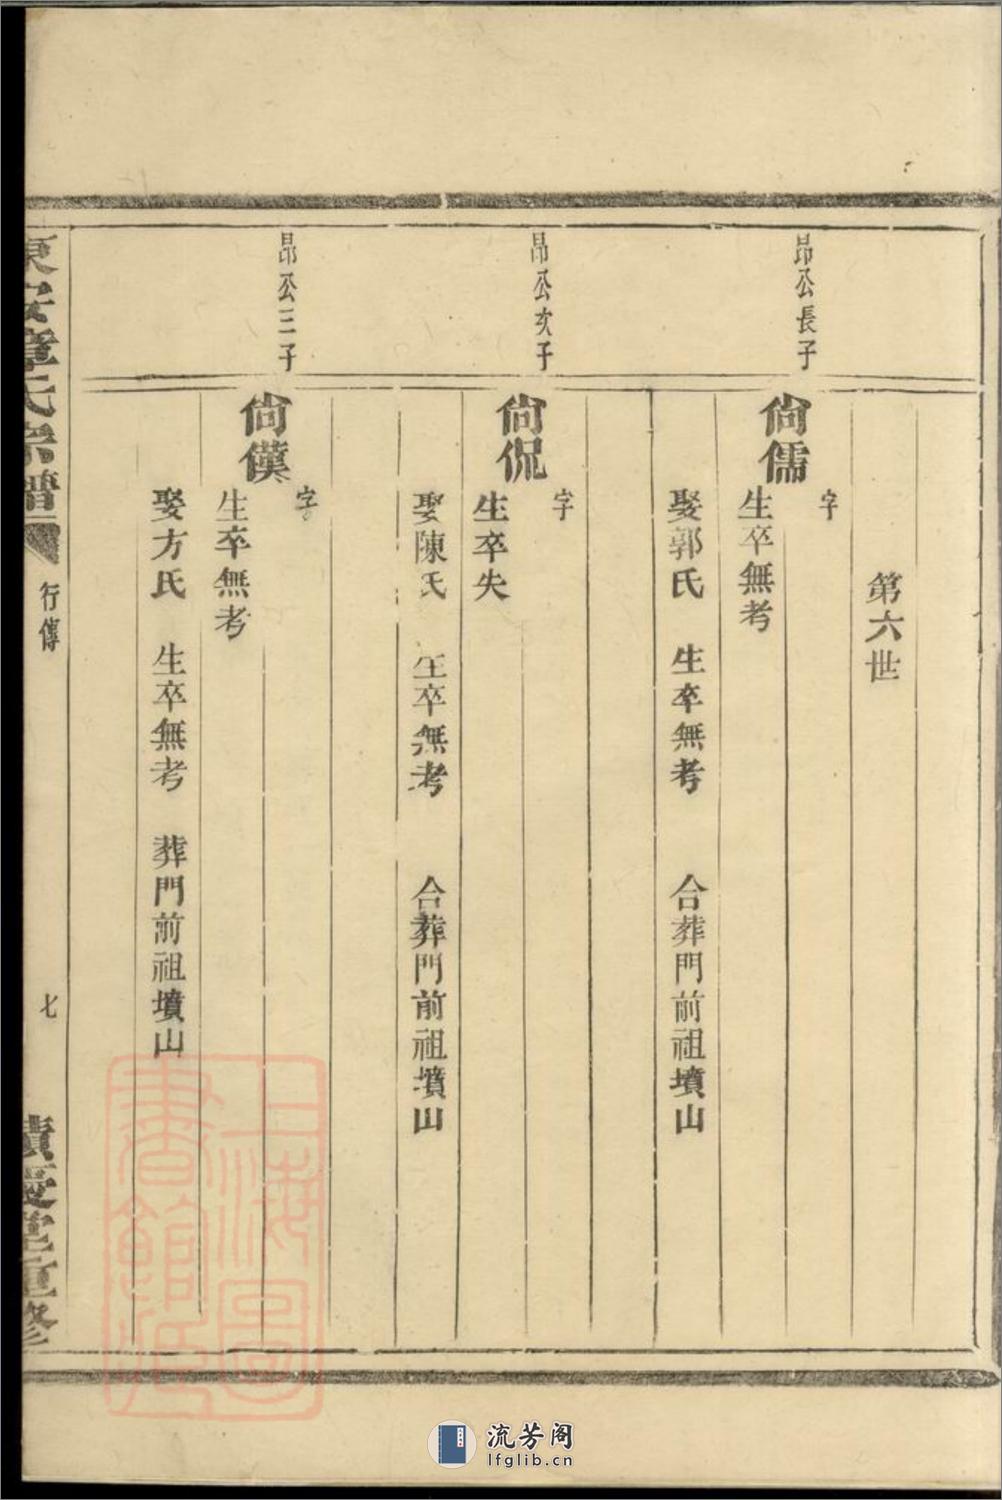 第六世
昂公長子
尙儒
字
生卒無考
娶郭氏　生卒無考　合葬門前祖墳山
昂公次子
尙侃
字
生卒失
娶陳氏　生卒無考　合葬門前祖墳山
昂公三子
尙僙
字
生卒無考
娶方氏　生卒無考　葬門前祖墳山
東安章氏宗譜
行傳
七
積慶堂重修
上海圖書館藏
流芳阁
lfglib.cn